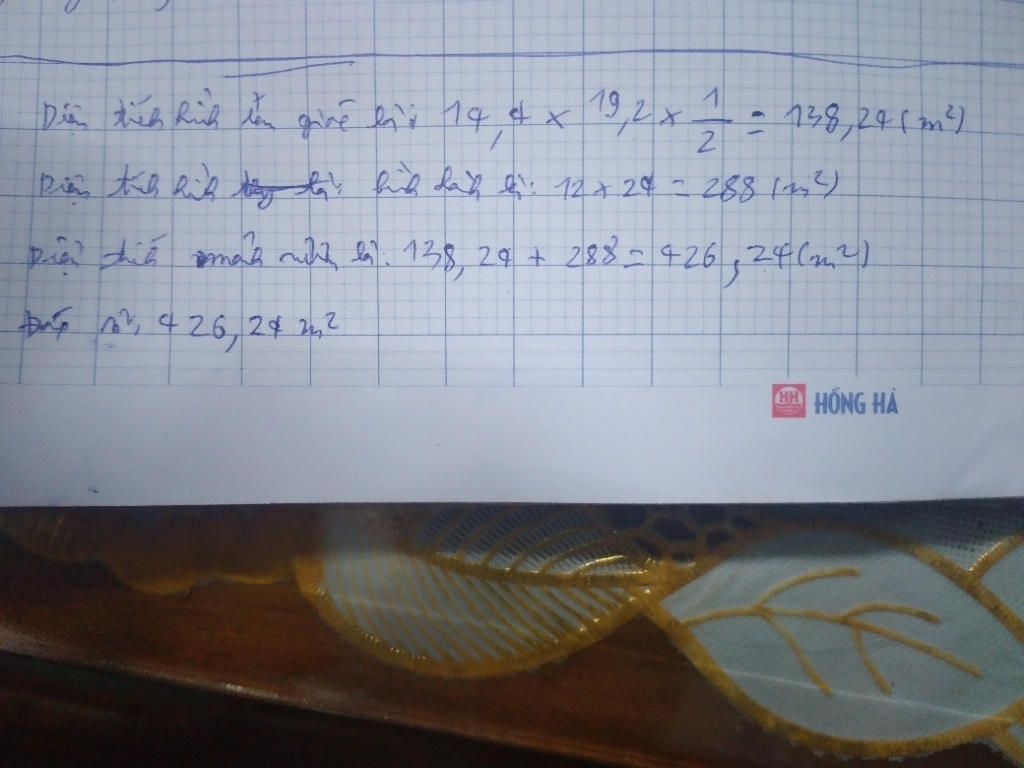 Diện tích hình tam giác là: 14,4 × 19,2 × 1/2 = 138,24 (m²)
Diện tích hình là: hình bình hành là: 12 × 24 = 288 (m²)
Diện tích mảnh vườn là: 138,24 + 288 = 426,24 (m²)
Đáp số: 426,24 m²
HH HỒNG HÀ